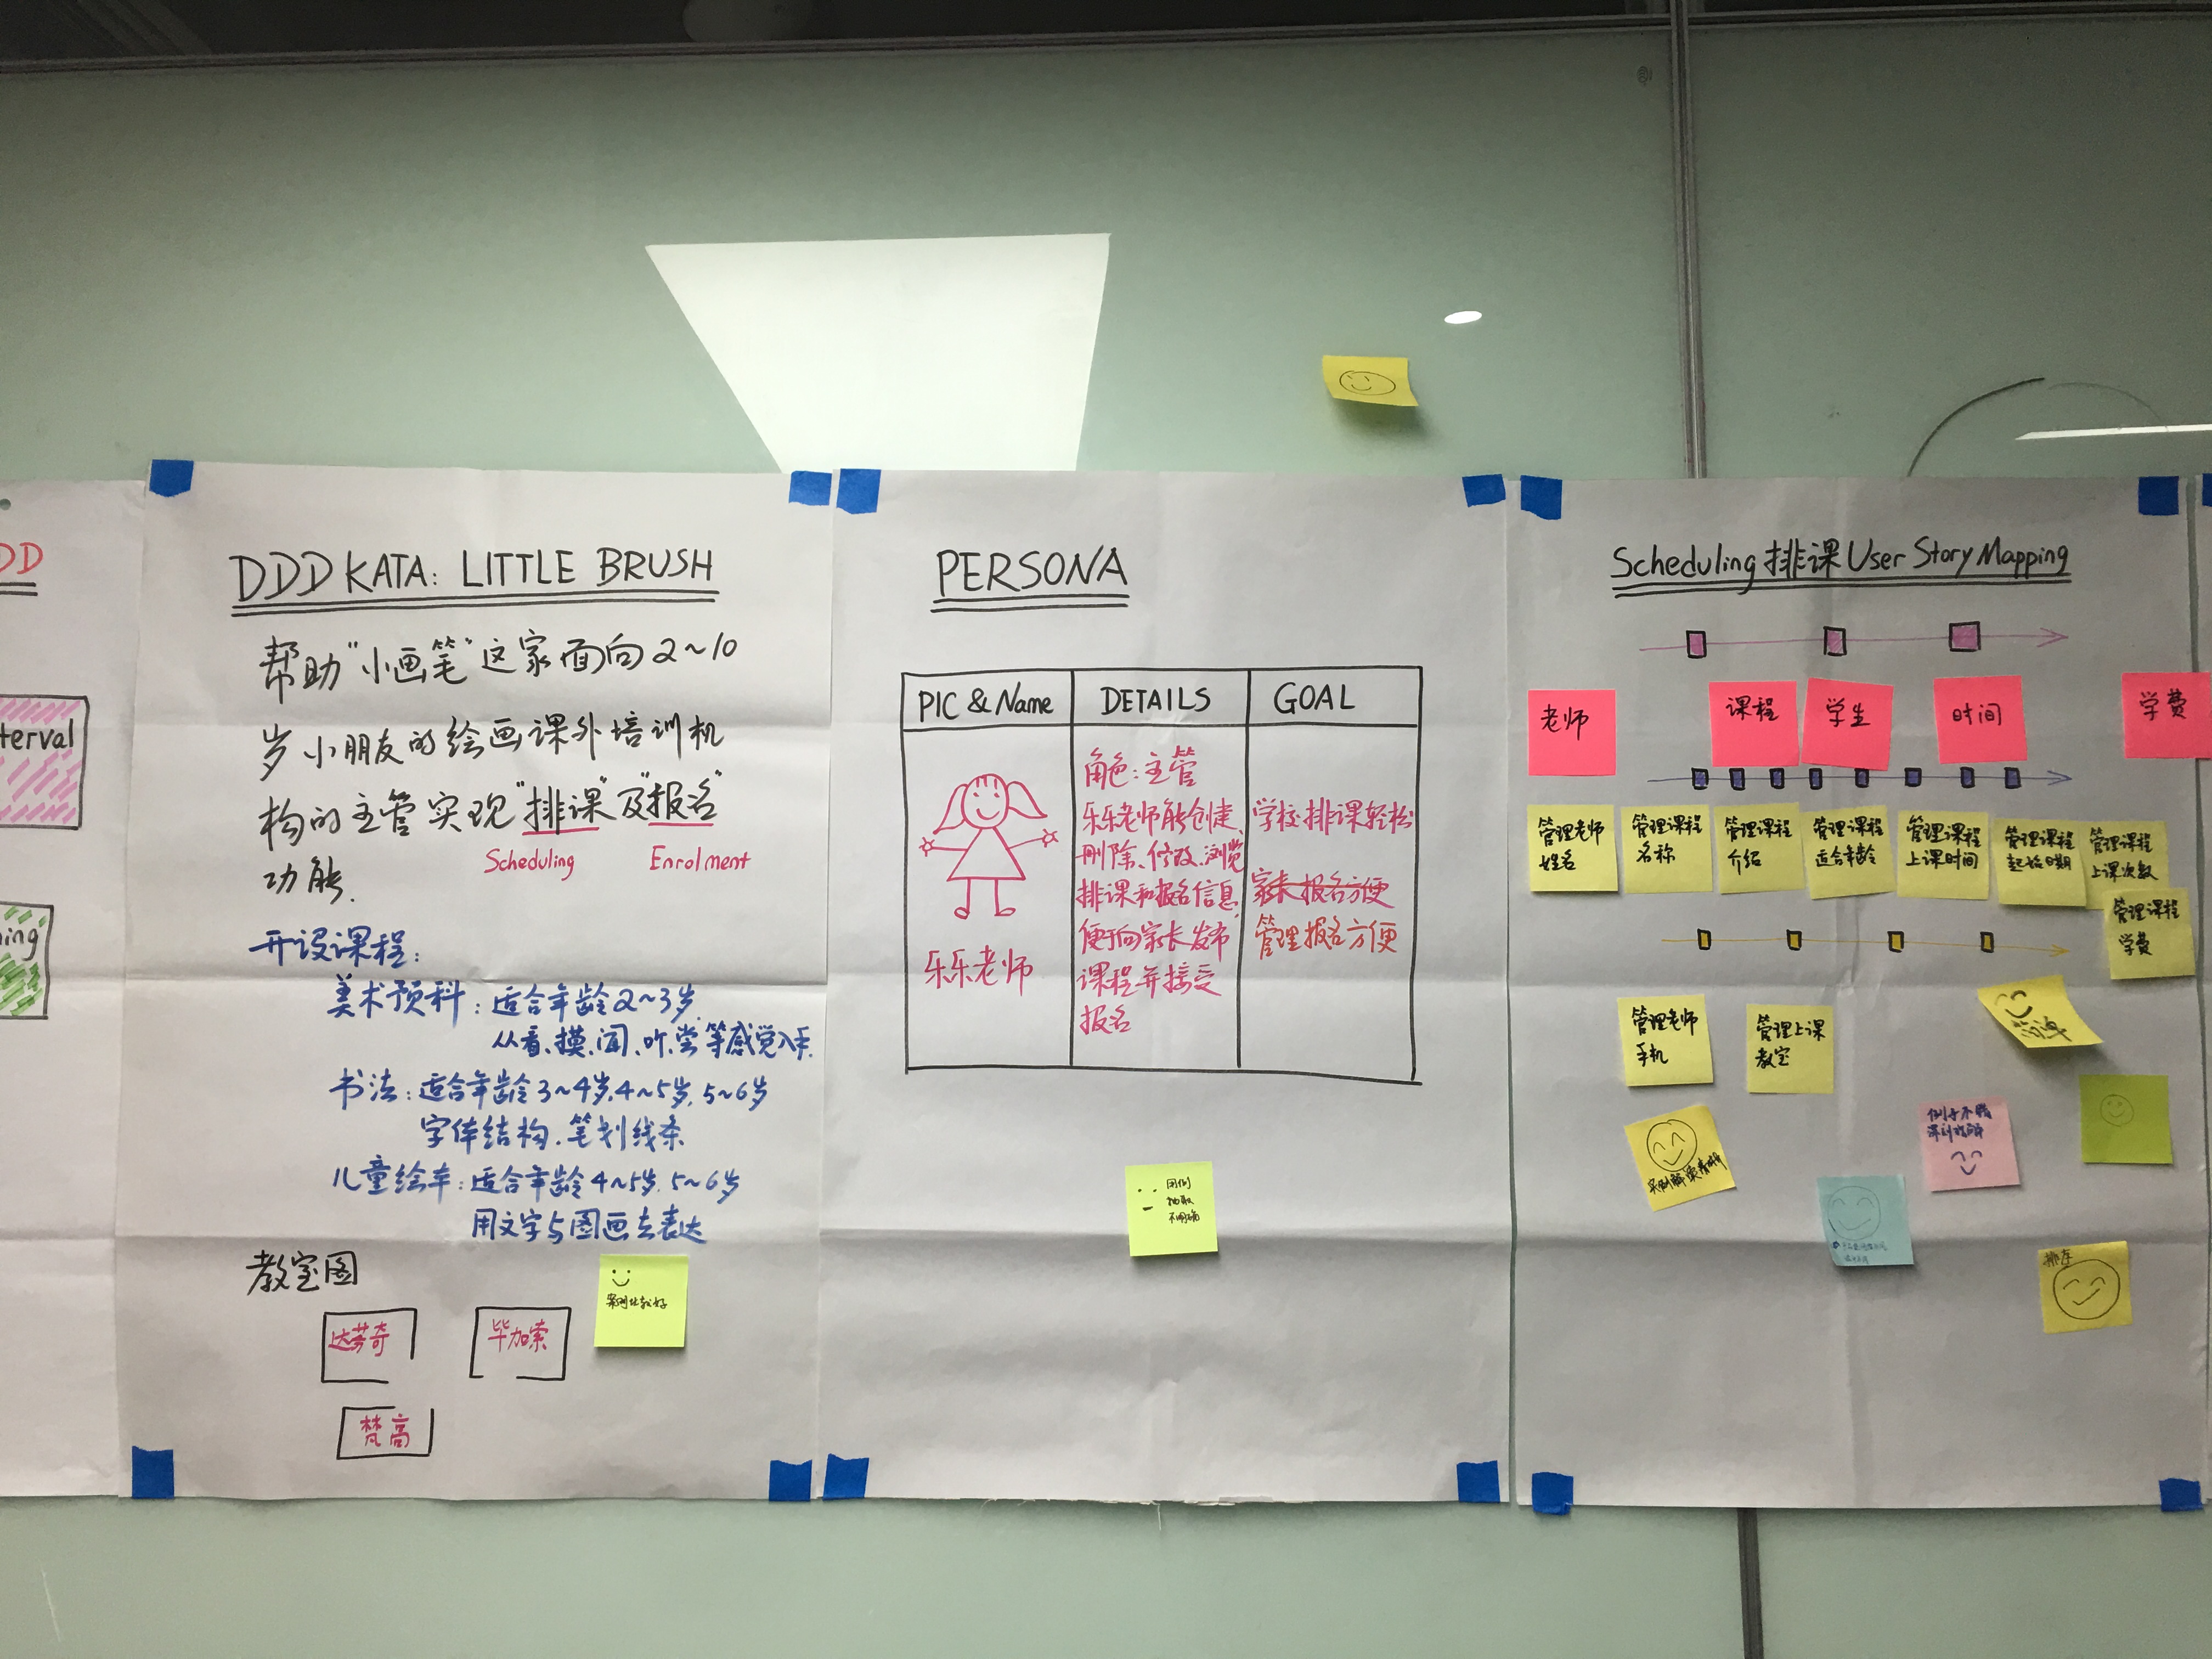 DD
terval
ing
DDD KATA: LITTLE BRUSH
帮助“小画笔”这家面向2~10
岁小朋友的绘画课外培训机
构的主管实现“排课”及“报名”
Scheduling
Enrolment
功能.
开设课程:
美术预科:适合年龄2~3岁.
从看、摸、闻、听、尝等感觉入手.
书法:适合年龄3~4岁,4~5岁,5~6岁
字体结构、笔划线条
儿童绘本:适合年龄4~5岁,5~6岁
用文字与图画去表达
教室图
达芬奇
毕加索
梵高
案例比较好
PERSONA
PIC & Name
DETAILS
GOAL
乐乐老师
角色:主管
乐乐老师能创建、
删除、修改、浏览
排课和报名信息,
便于向家长发布
课程并接受
报名
学校排课轻松
家长报名方便
管理报名方便
用例
抽取
不明确
Scheduling 排课 User Story Mapping
老师
课程
学生
时间
学费
管理老师
姓名
管理课程
名称
管理课程
介绍
管理课程
适合年龄
管理课程
上课时间
管理课程
起始日期
管理课程
上课次数
管理课程
学费
管理老师
手机
管理上课
教室
简单
例子不错
排序